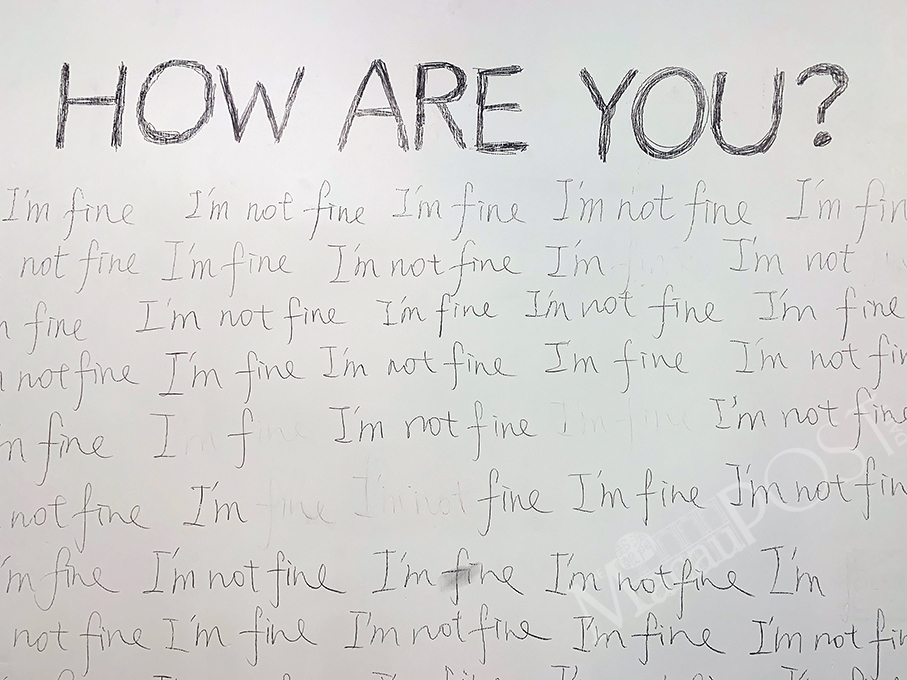 HOW ARE YOU?
I'm fine I'm not fine I'm fine I'm not fine I'm fin
not fine I'm fine I'm not fine I'm fine I'm not
m fine I'm not fine I'm fine I'm not fine I'm fine
not fine I'm fine I'm not fine I'm fine I'm not fin
m fine I'm fine I'm not fine I'm fine I'm not fine
not fine I'm fine I'm not fine I'm fine I'm not fin
'm fine I'm not fine I'm fine I'm not fine I'm
not fine I'm fine I'm not fine I'm fine I'm not fin
Macau POST